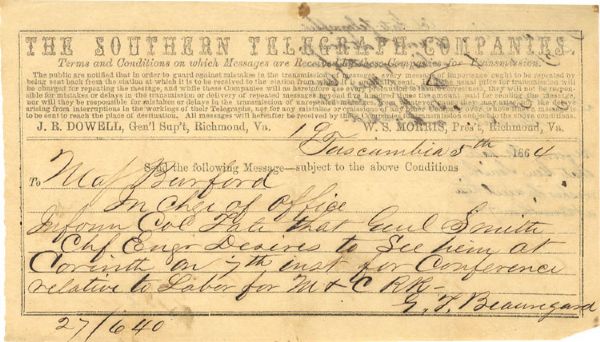 THE SOUTHERN TELEGRAPH COMPANIES.
Terms and Conditions on which Messages are Received by these Companies for Transmission.
The public are notified that in order to guard against mistakes in the transmission of messages, every message of importance ought to be repeated by
being sent back from the station at which it is to be received to the station from which it is originally sent.
be charged for repeating the message, and while these Companies will as heretofore use every precaution to ensure correctness, they will not be respon-
sible for mistakes or delays in the transmission or delivery of repeated messages beyond five hundred times the amount paid for sending the message,
nor will they be responsible for mistakes or delays in the transmission of unrepeated messages
arising from interruptions in the workings of their Telegraphs, nor for any mistakes or omissions of any
to be sent to reach the place of destination. All messages will hereafter be received by these Companies for transmission subject to the above conditions.
J. R. DOWELL, Gen'l Sup't, Richmond, Va. W. S. MORRIS, Pres't, Richmond, Va.
Tuscumbia 5th 1864
Send the following Message—subject to the above Conditions
To Maj Burford
In Chg of Office
Inform Col Tate that Genl Smith
Chf Engr Desires to See him at
Corinth on 7th inst for Conference
relative to Labor for M & C RR—
G. T. Beauregard
27/640